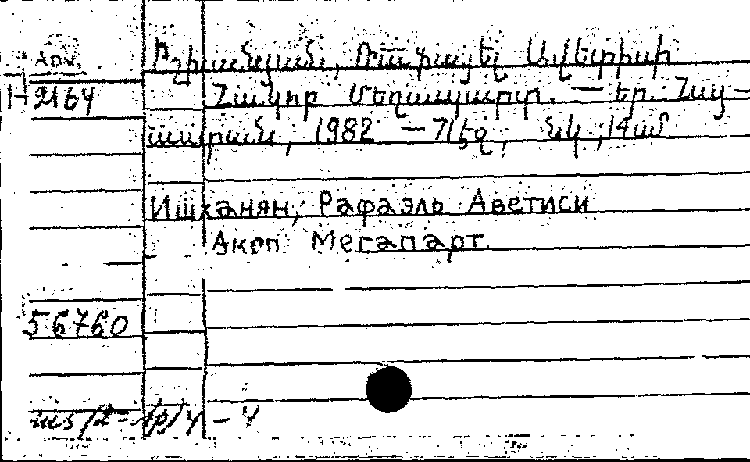 Apv.
Իշխանյան, Ռաֆայել Ավետիսի
H-2164
Հակոբ Մեղապարտ. — Եր. Հայ-
աստան, 1982 — 71էջ, նկ ; 14սմ
Ишханян, Рафаэль Аветиси
Акоп Мегапарт.
56760